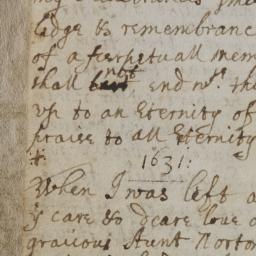 ledge & remembranc
of a perpetuall mem
shall not end wt. th
vp to an Eternity of
praise to all Eternity
1631:
When I was left a
ye care & deare loue o
gracious Aunt Norton